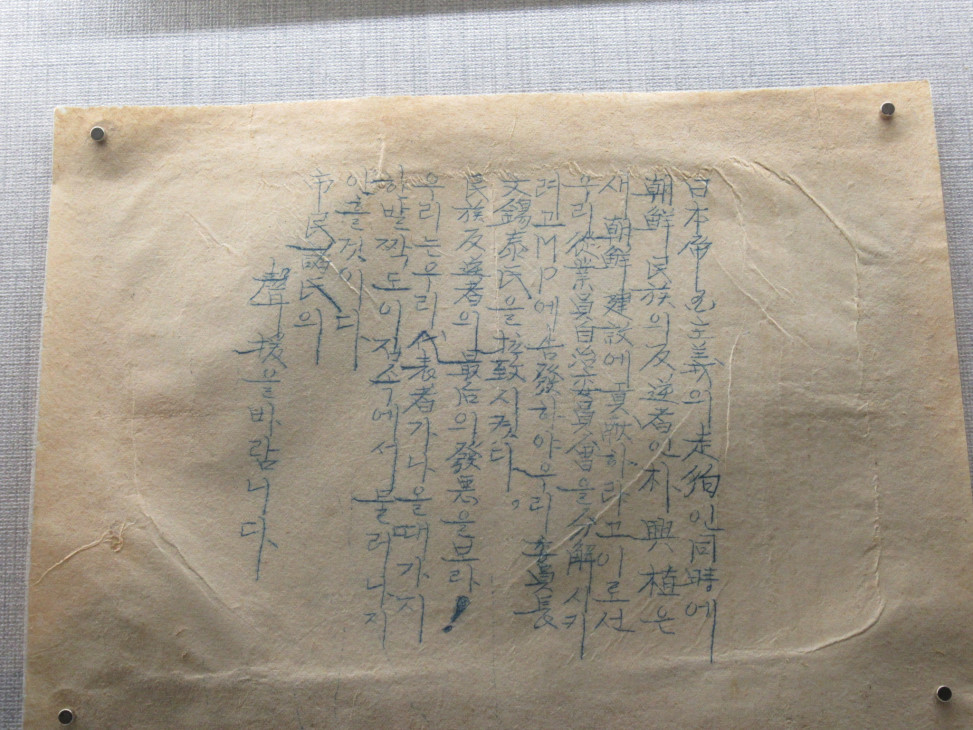 日本帝国主義의 走狗인 同時에
朝鮮 民族의 反逆者인 朴興植은
새 朝鮮 建設에 貢献하라고 이로선
우리 從業員自治委員會을 分解시키
려고 MP에 告發하야 우리 委員長
文錫泰氏을 拉致시켯다。
民族反逆者의 最后의 發惡을 보라!
우리는 우리 代表者가 나올때가지
하발짝도 이 잘속에서 물러나지
안흘것이다
市民諸氏의
聲援을 바람니다